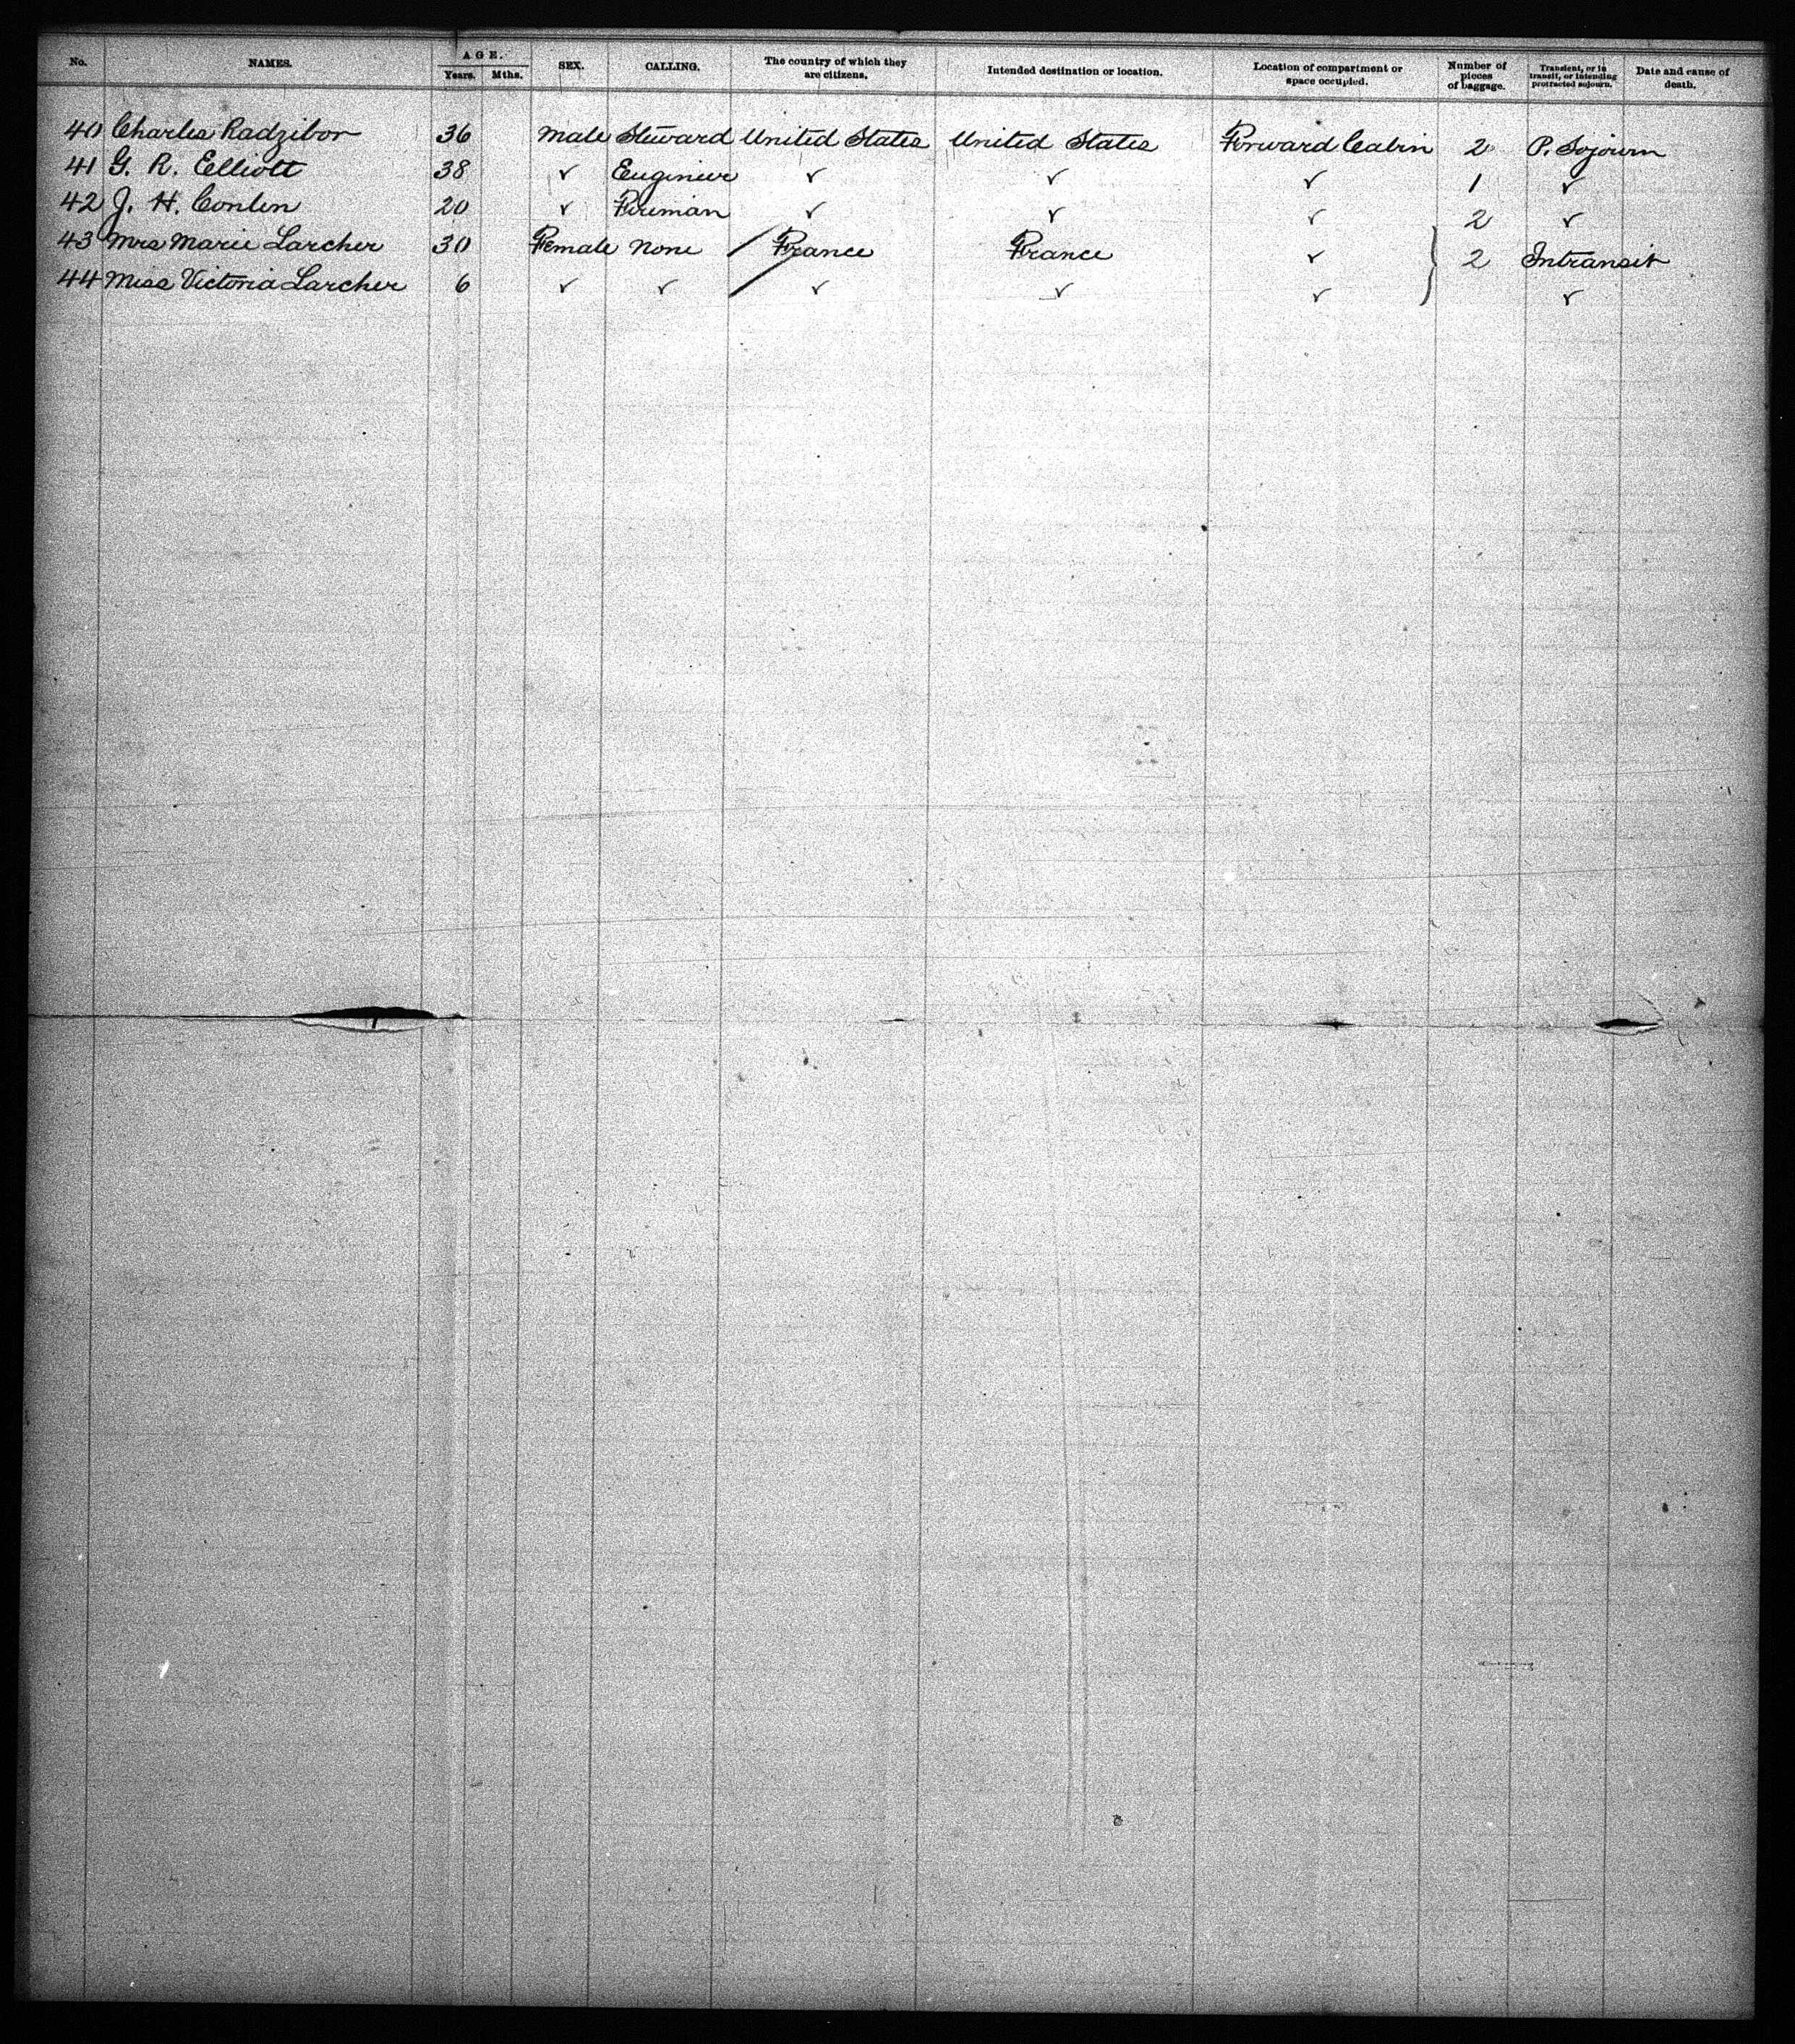 No. NAMES. AGE. Years. Mths. SEX. CALLING. The country of which they are citizens. Intended destination or location. Location of compartment or space occupied. Number of pieces of baggage. Transient, or in transit, or intending protracted sojourn. Date and cause of death.
40 Charles Radzibor 36 Male Steward United States United States Forward Cabin 2 P. Sojourn
41 G. R. Elliott 38 ✓ Engineer ✓ ✓ ✓ 1 ✓
42 J. H. Conlen 20 ✓ Fireman ✓ ✓ ✓ 2 ✓
43 Mrs Marie Larcher 30 Female None / France France ✓ } 2 Intransit
44 Miss Victoria Larcher 6 ✓ ✓ / ✓ ✓ ✓ ✓